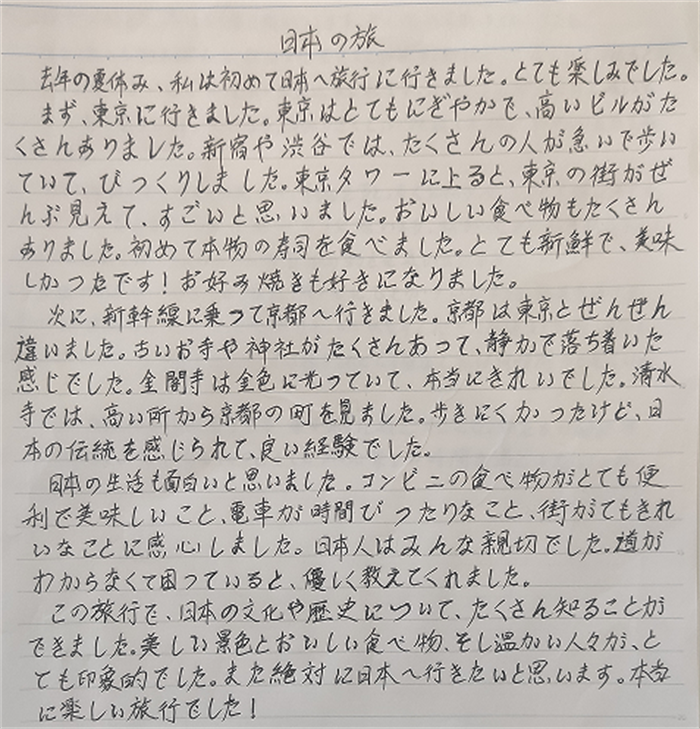 日本の旅
去年の夏休み、私は初めて日本へ旅行に行きました。とても楽しみでした。
まず、東京に行きました。東京はとてもにぎやかで、高いビルがた
くさんありました。新宿や渋谷では、たくさんの人が急いで歩い
ていて、びっくりしました。東京タワーに上ると、東京の街がぜ
んぶ見えて、すごいと思いました。おいしい食べ物もたくさん
ありました。初めて本物の寿司を食べました。とても新鮮で、美味
しかったです！お好み焼きも好きになりました。
次に、新幹線に乗って京都へ行きました。京都は東京とぜんぜん
違いました。古いお寺や神社がたくさんあって、静かで落ち着いた
感じでした。金閣寺は金色に光っていて、本当にきれいでした。清水
寺では、高い所から京都の町を見ました。歩きにくかったけど、日
本の伝統を感じられて、良い経験でした。
日本の生活も面白いと思いました。コンビニの食べ物がとても便
利で美味しいこと、電車が時間ぴったりなこと、街がてもきれ
いなことに感心しました。日本人はみんな親切でした。道が
わからなくて困っていると、優しく教えてくれました。
この旅行で、日本の文化や歴史について、たくさん知ることが
できました。美しい景色とおいしい食べ物、そし温かい人々が、と
ても印象的でした。また絶対に日本へ行きたいと思います。本当
に楽しい旅行でした！